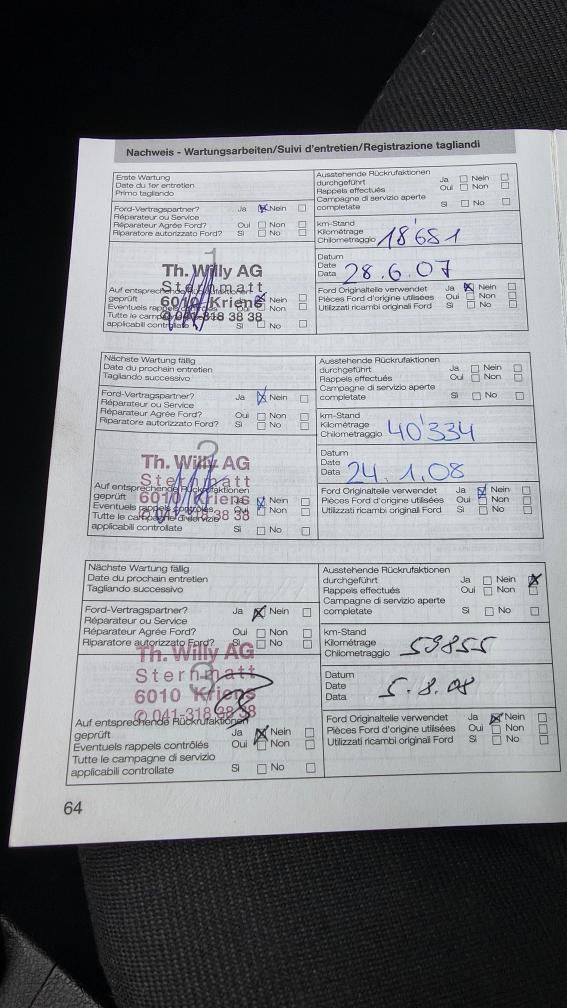 Nachweis - Wartungsarbeiten/Suivi d'entretien/Registrazione tagliandi
Erste Wartung
Date du 1er entretien
Primo tagliando
Ausstehende Rückrufaktionen
durchgeführt Ja Nein
Rappels effectués Oui Non
Campagne di servizio aperte
completate Si No
Ford-Vertragspartner? Ja Nein
Réparateur ou Service
Réparateur Agrée Ford? Oui Non
Riparatore autorizzato Ford? Si No
km-Stand
Kilométrage
Chilometraggio 18'651
1
Th. Willy AG
Sternmatt
6010 Kriens
041-318 38 38
Auf entsprechende
geprüft Nein
Eventuels
Tutte le
applicabili controllate Si No
Datum
Date
Data 28.6.07
Ford Originalteile verwendet Ja Nein
Pièces Ford d'origine utilisées Oui Non
Utilizzati ricambi originali Ford Si No
Nächste Wartung fällig
Date du prochain entretien
Tagliando successivo
Ausstehende Rückrufaktionen
durchgeführt Ja Nein
Rappels effectués Oui Non
Campagne di servizio aperte
completate Si No
Ford-Vertragspartner? Ja Nein
Réparateur ou Service
Réparateur Agrée Ford? Oui Non
Riparatore autorizzato Ford? Si No
km-Stand
Kilométrage
Chilometraggio 40'334
2
Th. Willy AG
Sternmatt
6010 Kriens
041-318 38 38
Auf entsprechende Rückrufaktionen
geprüft Nein
Eventuels rappels contrôlés Oui Non
Tutte le campagne di servizio
applicabili controllate Si No
Datum
Date
Data 24.1.08
Ford Originalteile verwendet Ja Nein
Pièces Ford d'origine utilisées Oui Non
Utilizzati ricambi originali Ford Si No
Nächste Wartung fällig
Date du prochain entretien
Tagliando successivo
Ausstehende Rückrufaktionen
durchgeführt Ja Nein
Rappels effectués Oui Non
Campagne di servizio aperte
completate Si No
Ford-Vertragspartner? Ja Nein
Réparateur ou Service
Réparateur Agrée Ford? Oui Non
Riparatore autorizzato Ford? Si No
km-Stand
Kilométrage
Chilometraggio 59855
3
Th. Willy AG
Sternmatt
6010 Kriens
041-318 38 38
Auf entsprechende Rückrufaktionen
geprüft Ja Nein
Eventuels rappels contrôlés Oui Non
Tutte le campagne di servizio
applicabili controllate Si No
Datum
Date
Data 5.8.08
Ford Originalteile verwendet Ja Nein
Pièces Ford d'origine utilisées Oui Non
Utilizzati ricambi originali Ford Si No
64